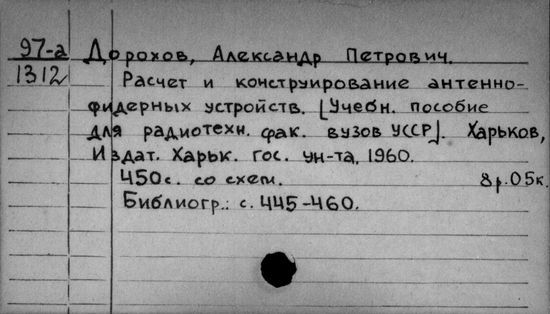 97-а Дорохов, Александр Петрович.
1312 Расчет и конструирование антенно-
фидерных устройств. [Учебн. пособие
для радиотехн. фак. вузов УССР]. Харьков,
Издат. Харьк. гос. ун-та, 1960.
450с. со схем. 8р.05к.
Библиогр.: с. 445-460.